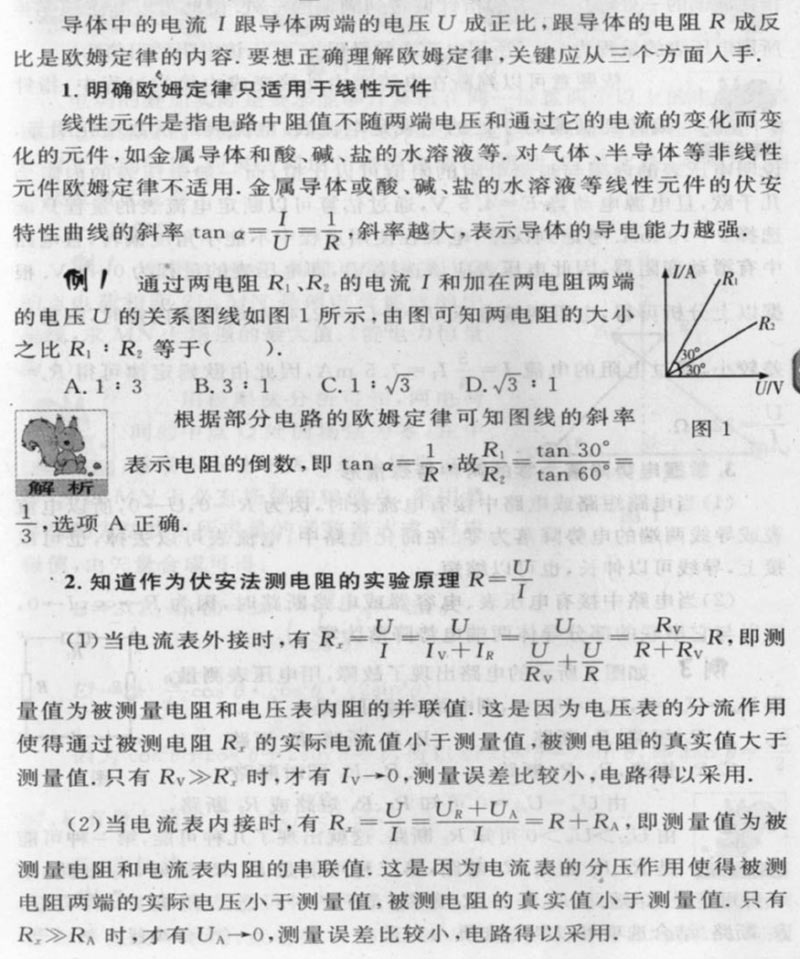 导体中的电流 I 跟导体两端的电压 U 成正比,跟导体的电阻 R 成反
比是欧姆定律的内容.要想正确理解欧姆定律,关键应从三个方面入手.
1.明确欧姆定律只适用于线性元件
线性元件是指电路中阻值不随两端电压和通过它的电流的变化而变
化的元件,如金属导体和酸、碱、盐的水溶液等.对气体、半导体等非线性
元件欧姆定律不适用.金属导体或酸、碱、盐的水溶液等线性元件的伏安
特性曲线的斜率 tan α=I/U=1/R,斜率越大,表示导体的导电能力越强.
例1 通过两电阻 R₁、R₂ 的电流 I 和加在两电阻两端
的电压 U 的关系图线如图 1 所示,由图可知两电阻的大小
之比 R₁∶R₂ 等于( ).
A.1∶3 B.3∶1 C.1∶√3 D.√3∶1
I/A
R₁
R₂
30°
30°
U/V
图 1
根据部分电路的欧姆定律可知图线的斜率
解析 表示电阻的倒数,即 tan α=1/R,故R₁/R₂=tan 30°/tan 60°=
1/3,选项 A 正确.
2.知道作为伏安法测电阻的实验原理 R=U/I
(1)当电流表外接时,有 Rₓ=U/I=U/(I_V+I_R)=U/(U/R_V+U/R)=R_V/(R+R_V)R,即测
量值为被测量电阻和电压表内阻的并联值.这是因为电压表的分流作用
使得通过被测电阻 Rₓ 的实际电流值小于测量值,被测电阻的真实值大于
测量值.只有 R_V≫Rₓ 时,才有 I_V→0,测量误差比较小,电路得以采用.
(2)当电流表内接时,有 Rₓ=U/I=(U_R+U_A)/I=R+R_A,即测量值为被
测量电阻和电流表内阻的串联值.这是因为电流表的分压作用使得被测
电阻两端的实际电压小于测量值,被测电阻的真实值小于测量值.只有
Rₓ≫R_A 时,才有 U_A→0,测量误差比较小,电路得以采用.